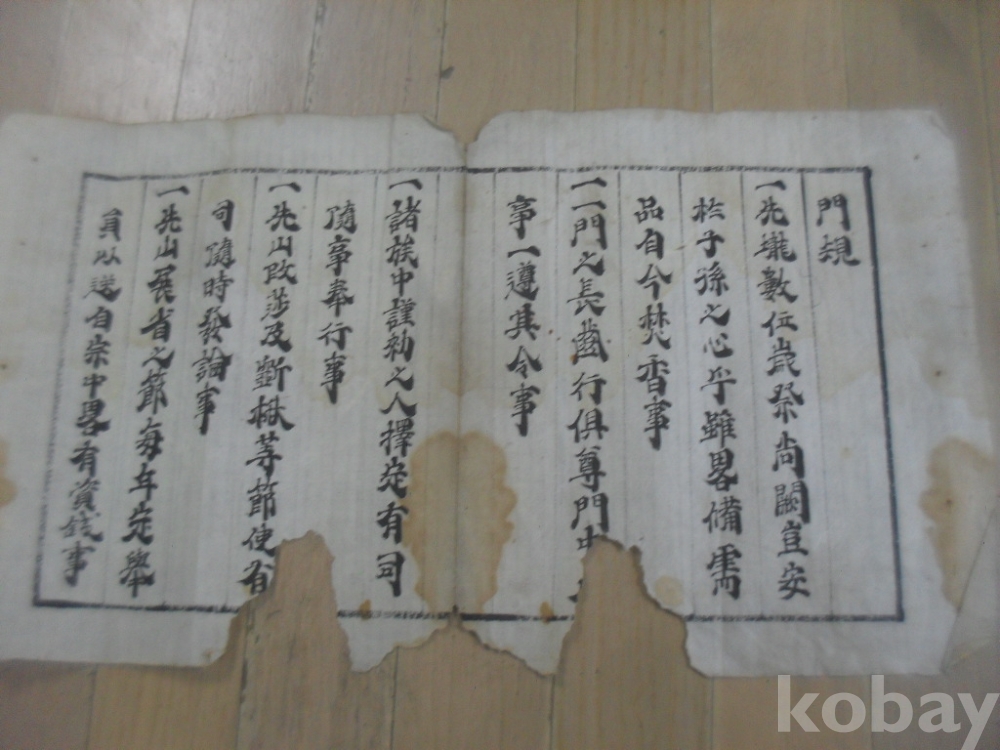 門規
一先壠數位歲祭尚闕豈安
於子孫之心乎雖畧備需
品自今焚香事
一一門之長齒行俱尊門中
事一遵其令事
一諸族中謹勑之人擇定有司
隨事奉行事
一先山改莎及斲楸等節使有
司隨時發論事
一先山展省之節每年定擧
員以送自宗中畧有資錢事
kobay